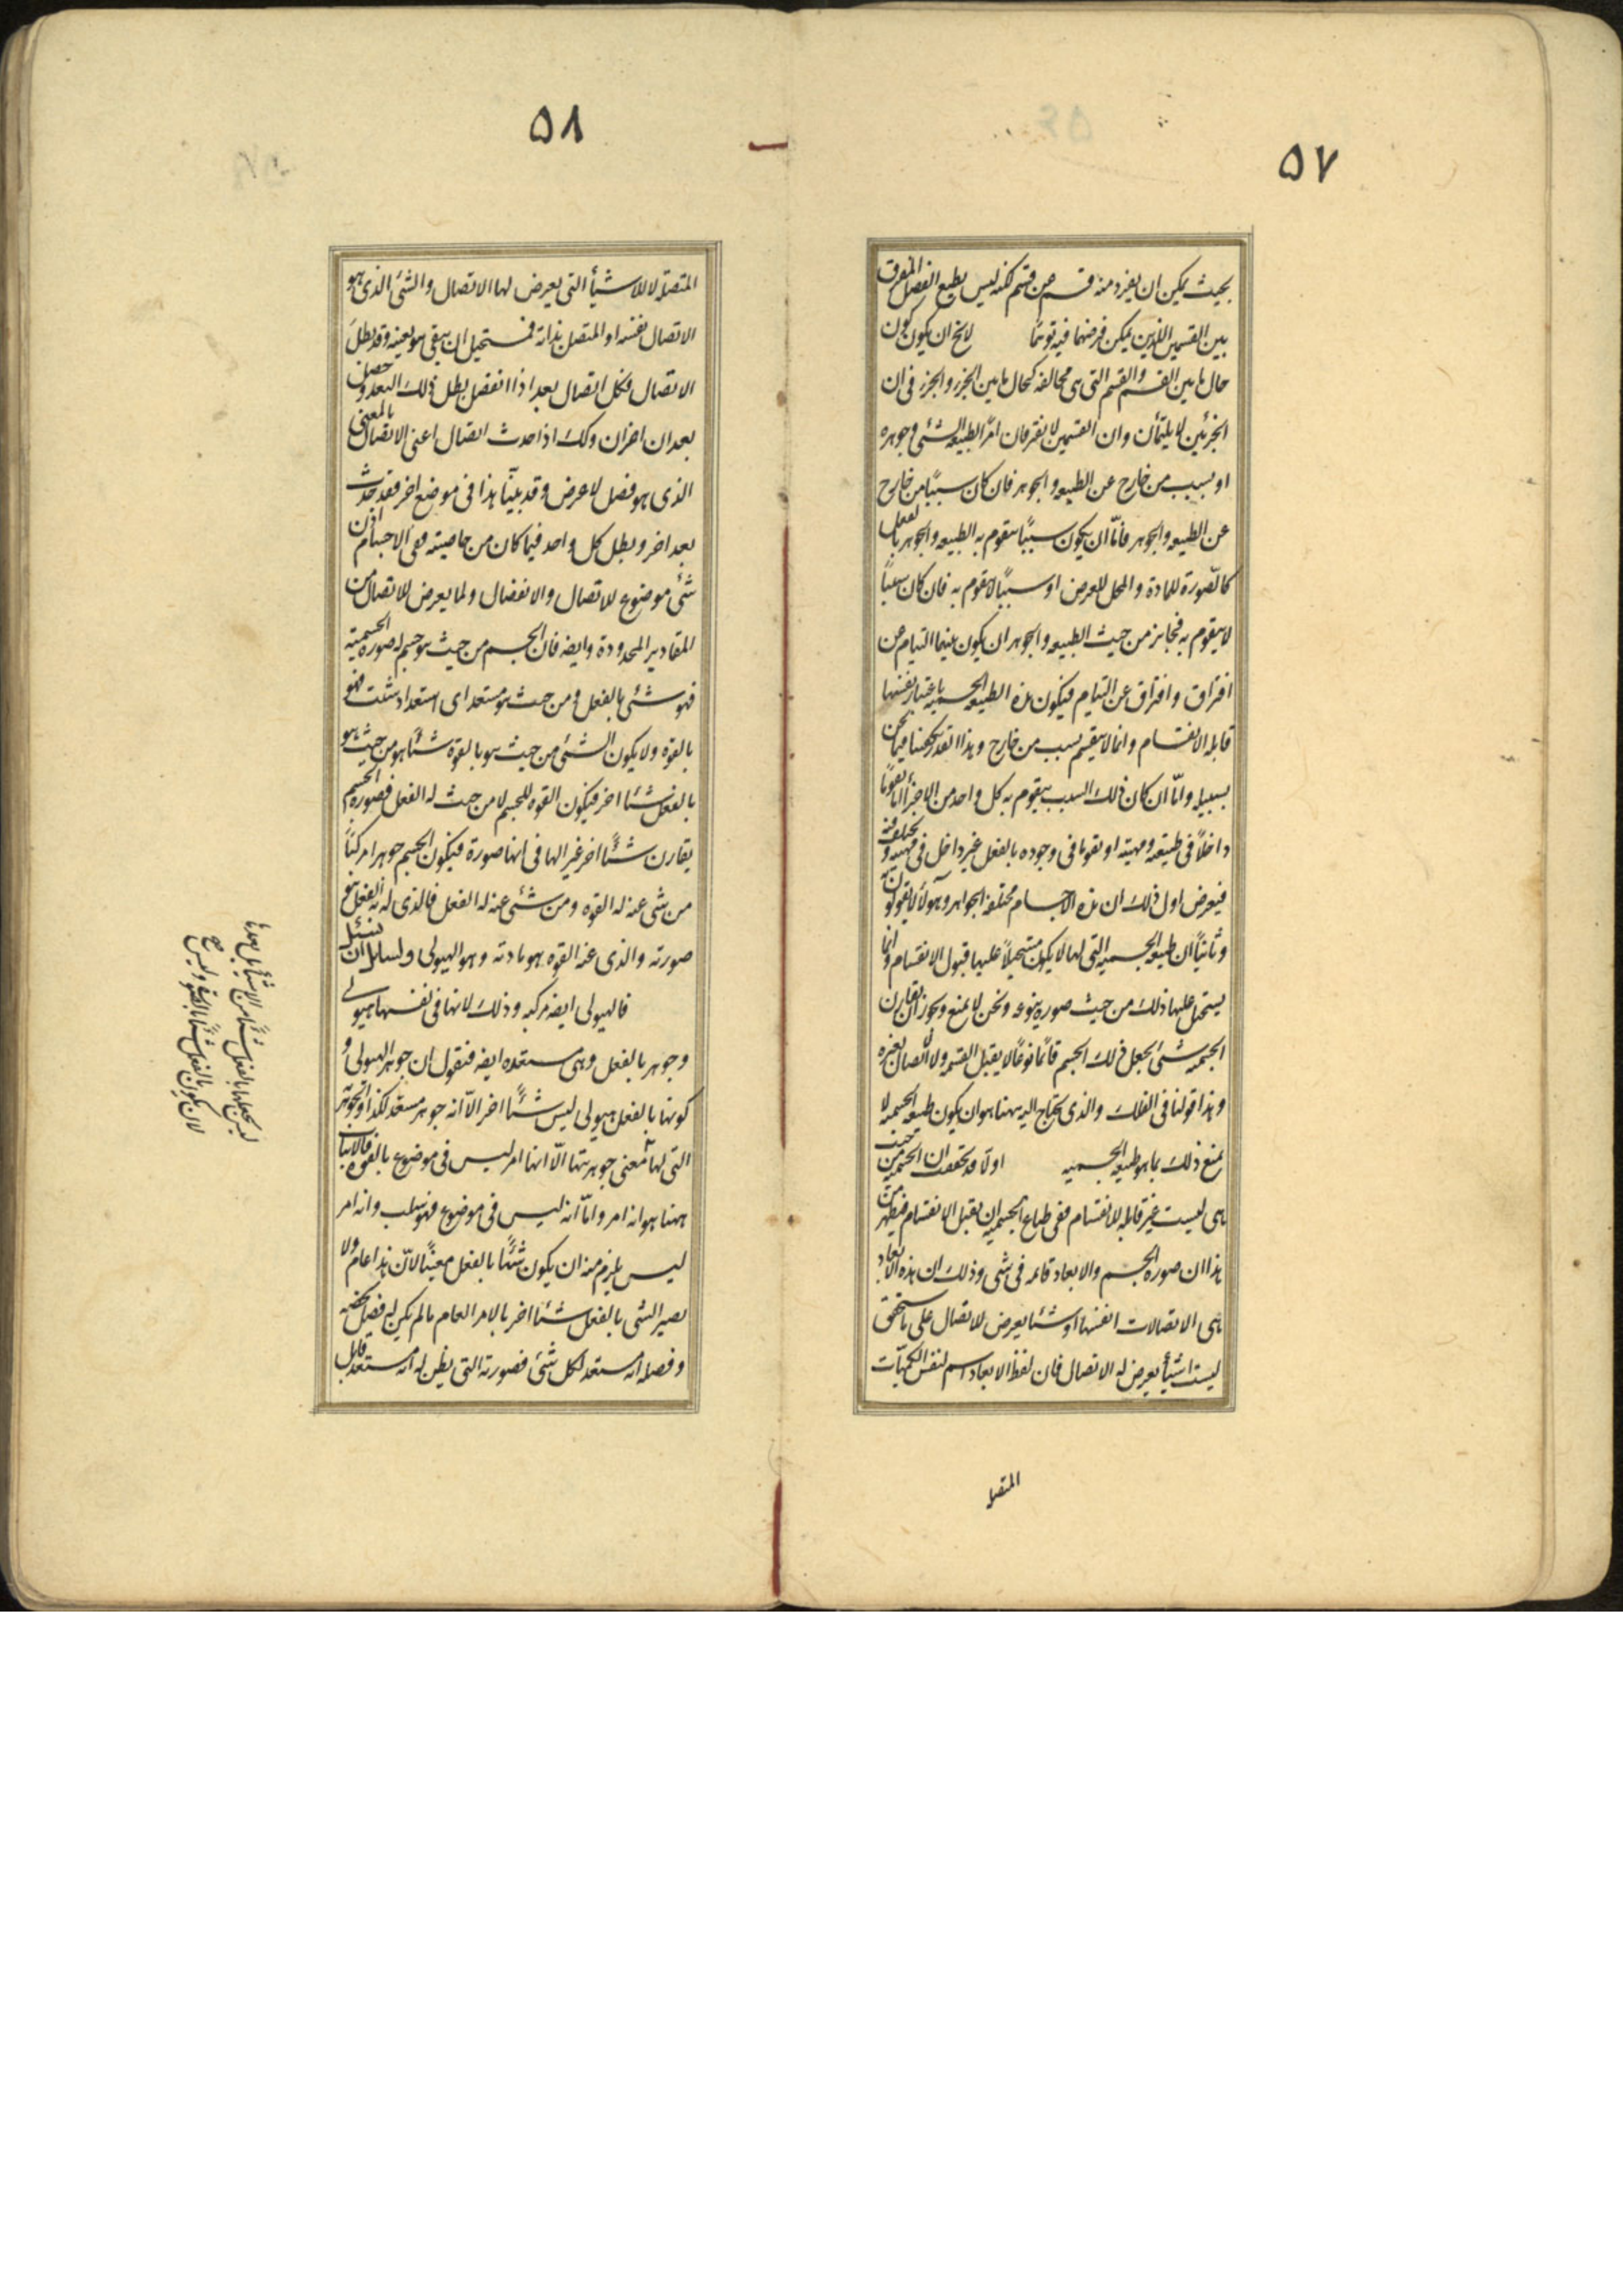 ٥٧
بحيث يمكن ان يفرد منه قسم عن قسم لكنه ليس يطيع الفصل المفرق
بين القسمين اللذين يمكن فرضهما فيه توهما لا يخ ان يكون كون
حال ما بين القسم والقسم التى هى مخالفه كحال ما بين الجزء والجزء فى ان
الجزئين لا يلتئمان وان القسمين لا يفترقان امرا لطبيعه الشئ وجوهره
او بسبب من خارج عن الطبيعه والجوهر فان كان سببا من خارج
عن الطبيعه والجوهر فاما ان يكون سببا يتقوم به الطبيعه والجوهر بالفعل
كالصورة للمادة والمحل للعرض او سببا لا يتقوم به فان كان سببا
لا يتقوم به فجائز من حيث الطبيعه والجوهر ان يكون بينهما التيام عن
افتراق وافتراق عن التيام فيكون هذه الطبيعه الجسميه باعتبار نفسها
قابله الانقسام وانما لا ينقسم بسبب من خارج وهذا القدر يكفينا فيما نحن
بسبيله واما ان كان ذلك السبب يتقوم به كل واحد من الاجزاء اما تقوما
داخلا فى طبيعته ومهيته او تقوما فى وجوده بالفعل غير داخل فى مهيته و يختلف فيه
فيعرض اول ذلك ان هذه الاجسام مختلفه الجواهر وهولاء لا يقولون به
وثانيا ان طبيعه الجسميه التى لها لا يكون مستحيلا عليها قبول الانقسام وانما
يستحيل عليها ذلك من حيث صوره ينوعه ونحن لا نمنع ويجوز ان يقارن
الجسميه شئ يجعل ذلك الجسم قائما نوعا لا يقبل القسمه ولا الاتصال بغيره
وهذا قولنا فى الفلك والذى يحتاج اليه ههنا هو ان يكون طبيعه الجسميه لا
تمنع ذلك بما هو طبيعه الجسميه اولا قد تحققت ان الجسميه من حيث
هى ليست غير قابله للانقسام ففى طباع الجسميه ان تقبل الانقسام فيظهر من
هذا ان صوره الجسم والابعاد قائمه فى شئ وذلك ان هذه الابعاد
هى الاتصالات انفسها او شئا يعرض للاتصال على ما ستحقق
ليست اشيأ يعرض له الاتصال فان لفظ الابعاد اسم لنفس الكميات
المتصله
٥٨
المتصله لا للاشيأ التى يعرض لها الاتصال والشئ الذى هو
الاتصال نفسه او المتصل بذاته فمستحيل ان يبقى هو بعينه وقد بطل
الاتصال فكل اتصال بعد اذا انفصل بطل ذلك البعد وحصل
بعدان اخران وكك اذا حدث اتصال اعنى الاتصال بالمعنى
الذى هو فصل لا عرض وقد بينا هذا فى موضع اخر فقد حدث
بعد اخر وبطل كل واحد فيما كان من خاصيته ففى الاجسام اذن
شئ موضوع للاتصال والانفصال ولما يعرض للاتصال من
المقادير المحدودة وايضه فان الجسم من حيث هو جسم له صوره الجسميه
فهو شئ بالفعل ومن حيث هو مستعد اى استعداد شئت فهو
بالقوه ولا يكون الشئ من حيث هو بالقوة شئا هو من حيث هو
بالفعل شئا اخر فيكون القوه للجسم لا من حيث له الفعل فصوره الجسم
يقارن شئا اخر غير الها فى انها صورة فيكون الجسم جوهرا مركبا
من شئ عنه له القوه ومن شئ عنه له الفعل فالذى له به الفعل هو
صورته والذى عنه القوه هو مادته وهو الهيولى ولسائل ان يسئل
فالهيولى ايضه مركبه وذلك لانها فى نفسها هيولى
وجوهر بالفعل وهى مستعده ايضه فنقول ان جوهر الهيولى و
كونها بالفعل هيولى ليس شئا اخر الا انه جوهر مستعد لكذا والجوهريه
التى لها معنى جوهريتها الا انها امر ليس فى موضوع بالقوه فالاثبات
ههنا هو انه امر واما انه ليس فى موضوع فهو سلب وانه امر
ليس يلزم منه ان يكون شئا بالفعل معينا لان هذا عام ولا
يصير الشئ بالفعل شئا اخر بالامر العام ما لم يكن له فصل يخصه
وفصله انه مستعد لكل شئ فصورته التى يظن له انه مستعد قابل
ليس يجعلها بالفعل شئا من الاشيأ بل يعدها
لان يكون بالفعل شئا بالصورة وليس